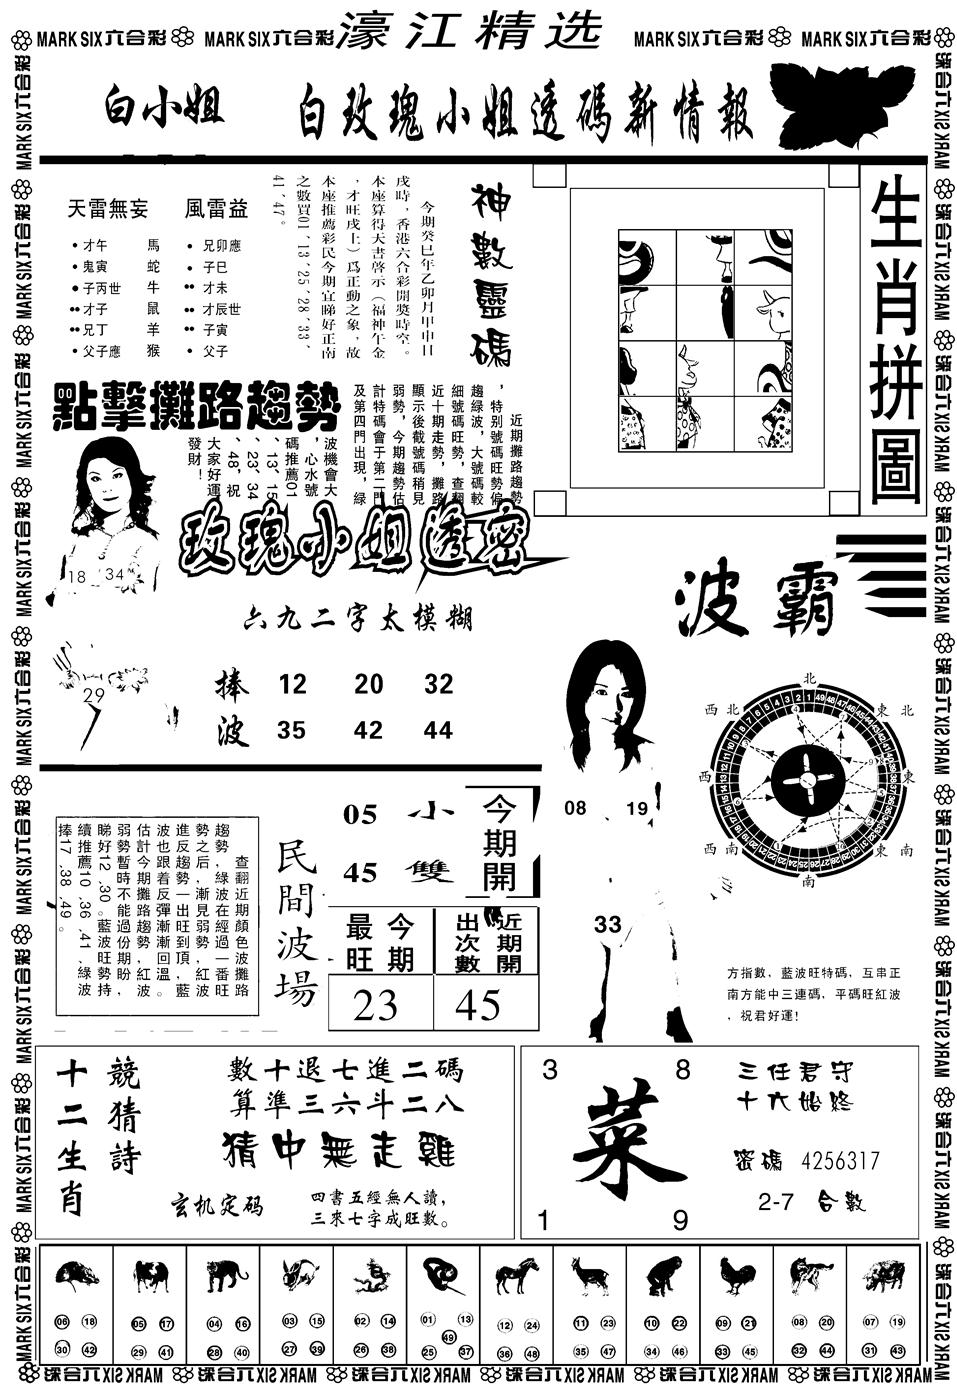 MARK SIX六合彩 MARK SIX六合彩 濠江精选 MARK SIX六合彩 MARK SIX六合彩
白小姐 白玫瑰小姐透碼新情報
生肖拼圖
神數靈碼
今期癸巳年乙卯月甲申日
戌時，香港六合彩開獎時空。
本座算得天書啓示（福神午金
，才旺戌土）爲正動之象，故
本座推薦彩民今期宜睇好正南
之數買01、13、25、28、33、
41、47。
天雷無妄 風雷益
• 才午 馬 • 兄卯應
• 鬼寅 蛇 • 子巳
• 子丙世 牛 • 才未
•• 才子 鼠 •• 才辰世
•• 兄丁 羊 •• 子寅
• 父子應 猴 • 父子
點擊攤路趨勢
近期攤路趨勢
，特別號碼旺勢偏
趨綠波，大號碼較
細號碼旺勢，查翻
近十期走勢，攤路
顯示後截號碼稍見
弱勢，今期趨勢估
計特碼會于第二門
及第四門出現，綠
波機會大
，心水號
碼推薦01
、13、15
、23、34
、48，祝
大家好運
發財！
18 34
29
玫瑰小姐透密
六九二字太模糊
捧 12 20 32
波 35 42 44
波霸
08 19
33
北
東北
東
東南
南
西南
西
西北
方指數，藍波旺特碼，互串正
南方能中三連碼，平碼旺紅波
，祝君好運！
查翻近期顏色波攤路
趨勢，綠波在經過一番旺
勢之后，漸見弱勢，紅波
進反趨勢一出旺到頂，藍
波也跟着反彈漸漸回溫。
估計今期攤路趨勢，紅波
弱勢暫時不能過份期盼，
睇好12、30。藍波旺勢持
續推薦10、36、41，綠波
捧17、38、49。
民間波場
05 小
45 雙
今期開
最旺 今期
出次數 近期開
23 45
十二生肖
競猜詩
數十退七進二碼
算準三六斗二八
猜中無走雞
玄机定码
四書五經無人讀，
三來七字成旺數。
3 8
菜
1 9
三任君守
十六始終
密碼 4256317
2-7 合數
06 18 30 42
05 17 29 41
04 16 28 40
03 15 27 39
02 14 26 38
01 13 49 25 37
12 24 36 48
11 23 35 47
10 22 34 46
09 21 33 45
08 20 32 44
07 19 31 43